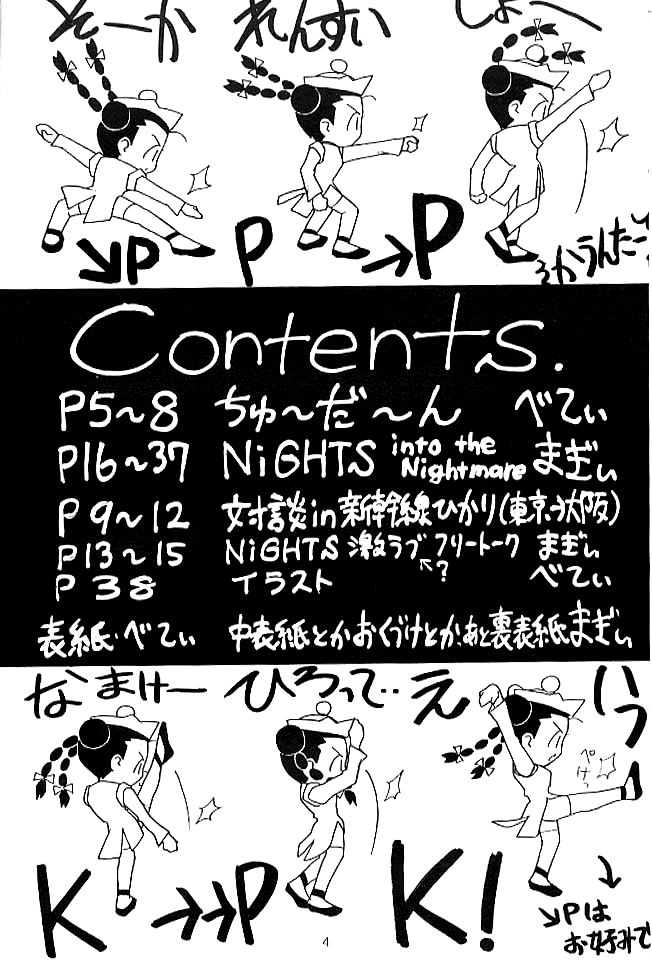 そーか れんすい しょ〜
↘P P →P
Contents.
P5〜8 ちゅ〜だ〜ん べてぃ
P16〜37 NiGHTS into the Nightmare まぎぃ
P 9〜12 対談in新幹線ひかり(東京→大阪)
P13〜15 NiGHTS 激ラブ フリートーク まぎぃ
↖?
P 38 イラスト べてぃ
表紙・べてぃ 中表紙とかおくづけとか、あと裏表紙まぎぃ
なまけー ひろって‥ え いっ
ぺけっ
K →→P K!
↓
↘Pは
お好みで
4